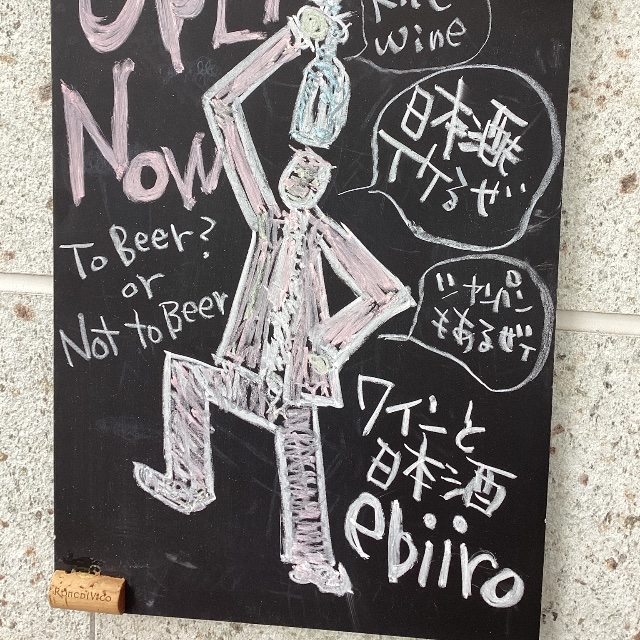 OPEN
Now
wine
日本酒
イケるぜ
To Beer?
or
Not to Beer
シャンパン
もあるぜィ
ワインと
日本酒
ebiiro
RONCDIVICO